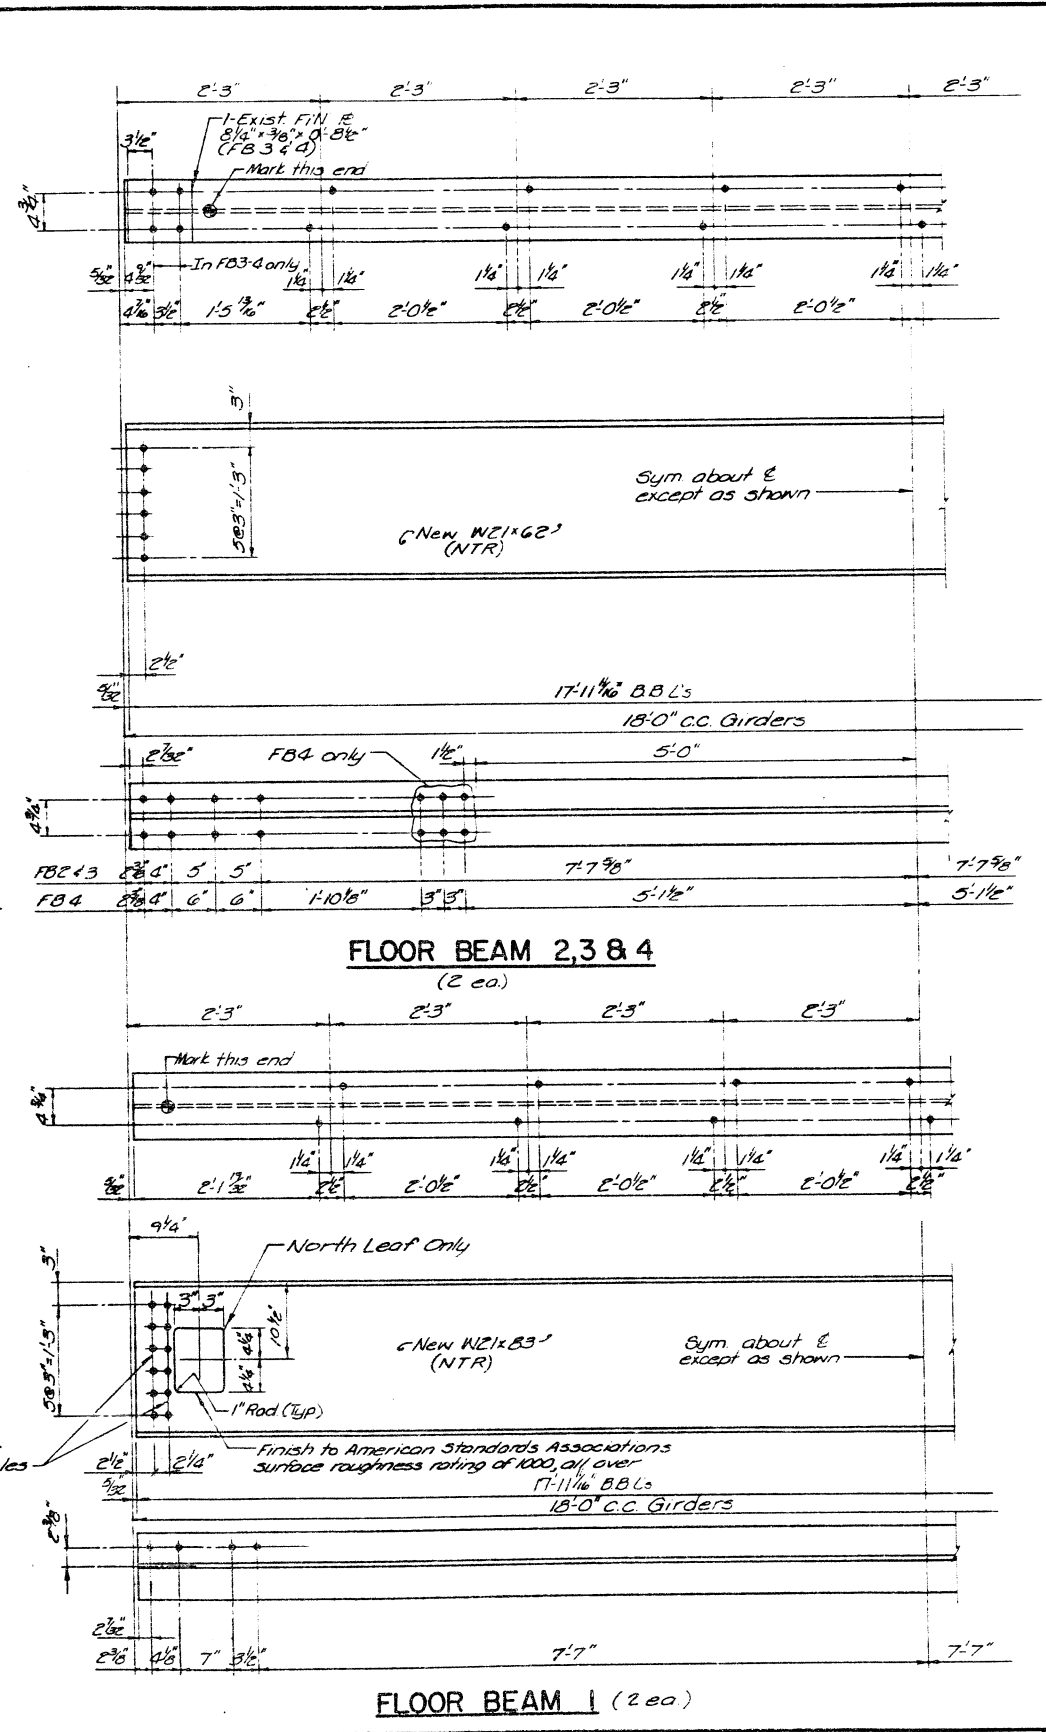 2'-3" 2'-3" 2'-3" 2'-3" 2'-3"
1-Exist. FIN ℄
8¼" × ⅜" × 0'-8½"
(FB 3 & 4)
3½"
Mark this end
4¾"
In FB3-4 only
5/32" 4 9/32" 1¼" 1¼" 1¼" 1¼" 1¼" 1¼" 1¼" 1¼"
4 7/16" 3½" 1'-5 13/16" 2½" 2'-0½" 2½" 2'-0½" 2½" 2'-0½"
3"
5@3"=1'-3"
Sym. about ℄
except as shown
New W21×62
(NTR)
2½"
5/32"
17'-11 11/16" B.B. L's
18'-0" c.c. Girders
2 7/32" FB4 only 1½" 5'-0"
4¾"
FB2 & 3 2⅜" 4" 5" 5" 7'-7⅝" 7'-7⅝"
FB4 2⅞" 4" 6" 6" 1'-10⅛" 3" 3" 5'-1½" 5'-1½"
FLOOR BEAM 2,3 & 4
(2 ea.)
2'-3" 2'-3" 2'-3" 2'-3"
Mark this end
4¾"
1¼" 1¼" 1¼" 1¼" 1¼" 1¼" 1¼" 1¼"
5/32" 2'-1 19/32" 2½" 2'-0½" 2½" 2'-0½" 2½" 2'-0½" 2½"
9¼"
North Leaf Only
3"
3" 3"
10½"
5@3"=1'-3"
4¼" 4¼"
New W21×83
(NTR)
Sym. about ℄
except as shown
1" Rad. (Typ)
les
Finish to American Standards Associations
surface roughness rating of 1000, all over
2½" 2¼"
5/32"
17'-11 11/16" B.B. L's
18'-0" c.c. Girders
2⅜"
2 7/32"
2⅜" 4⅛" 7" 3½" 7'-7" 7'-7"
FLOOR BEAM 1 (2 ea.)